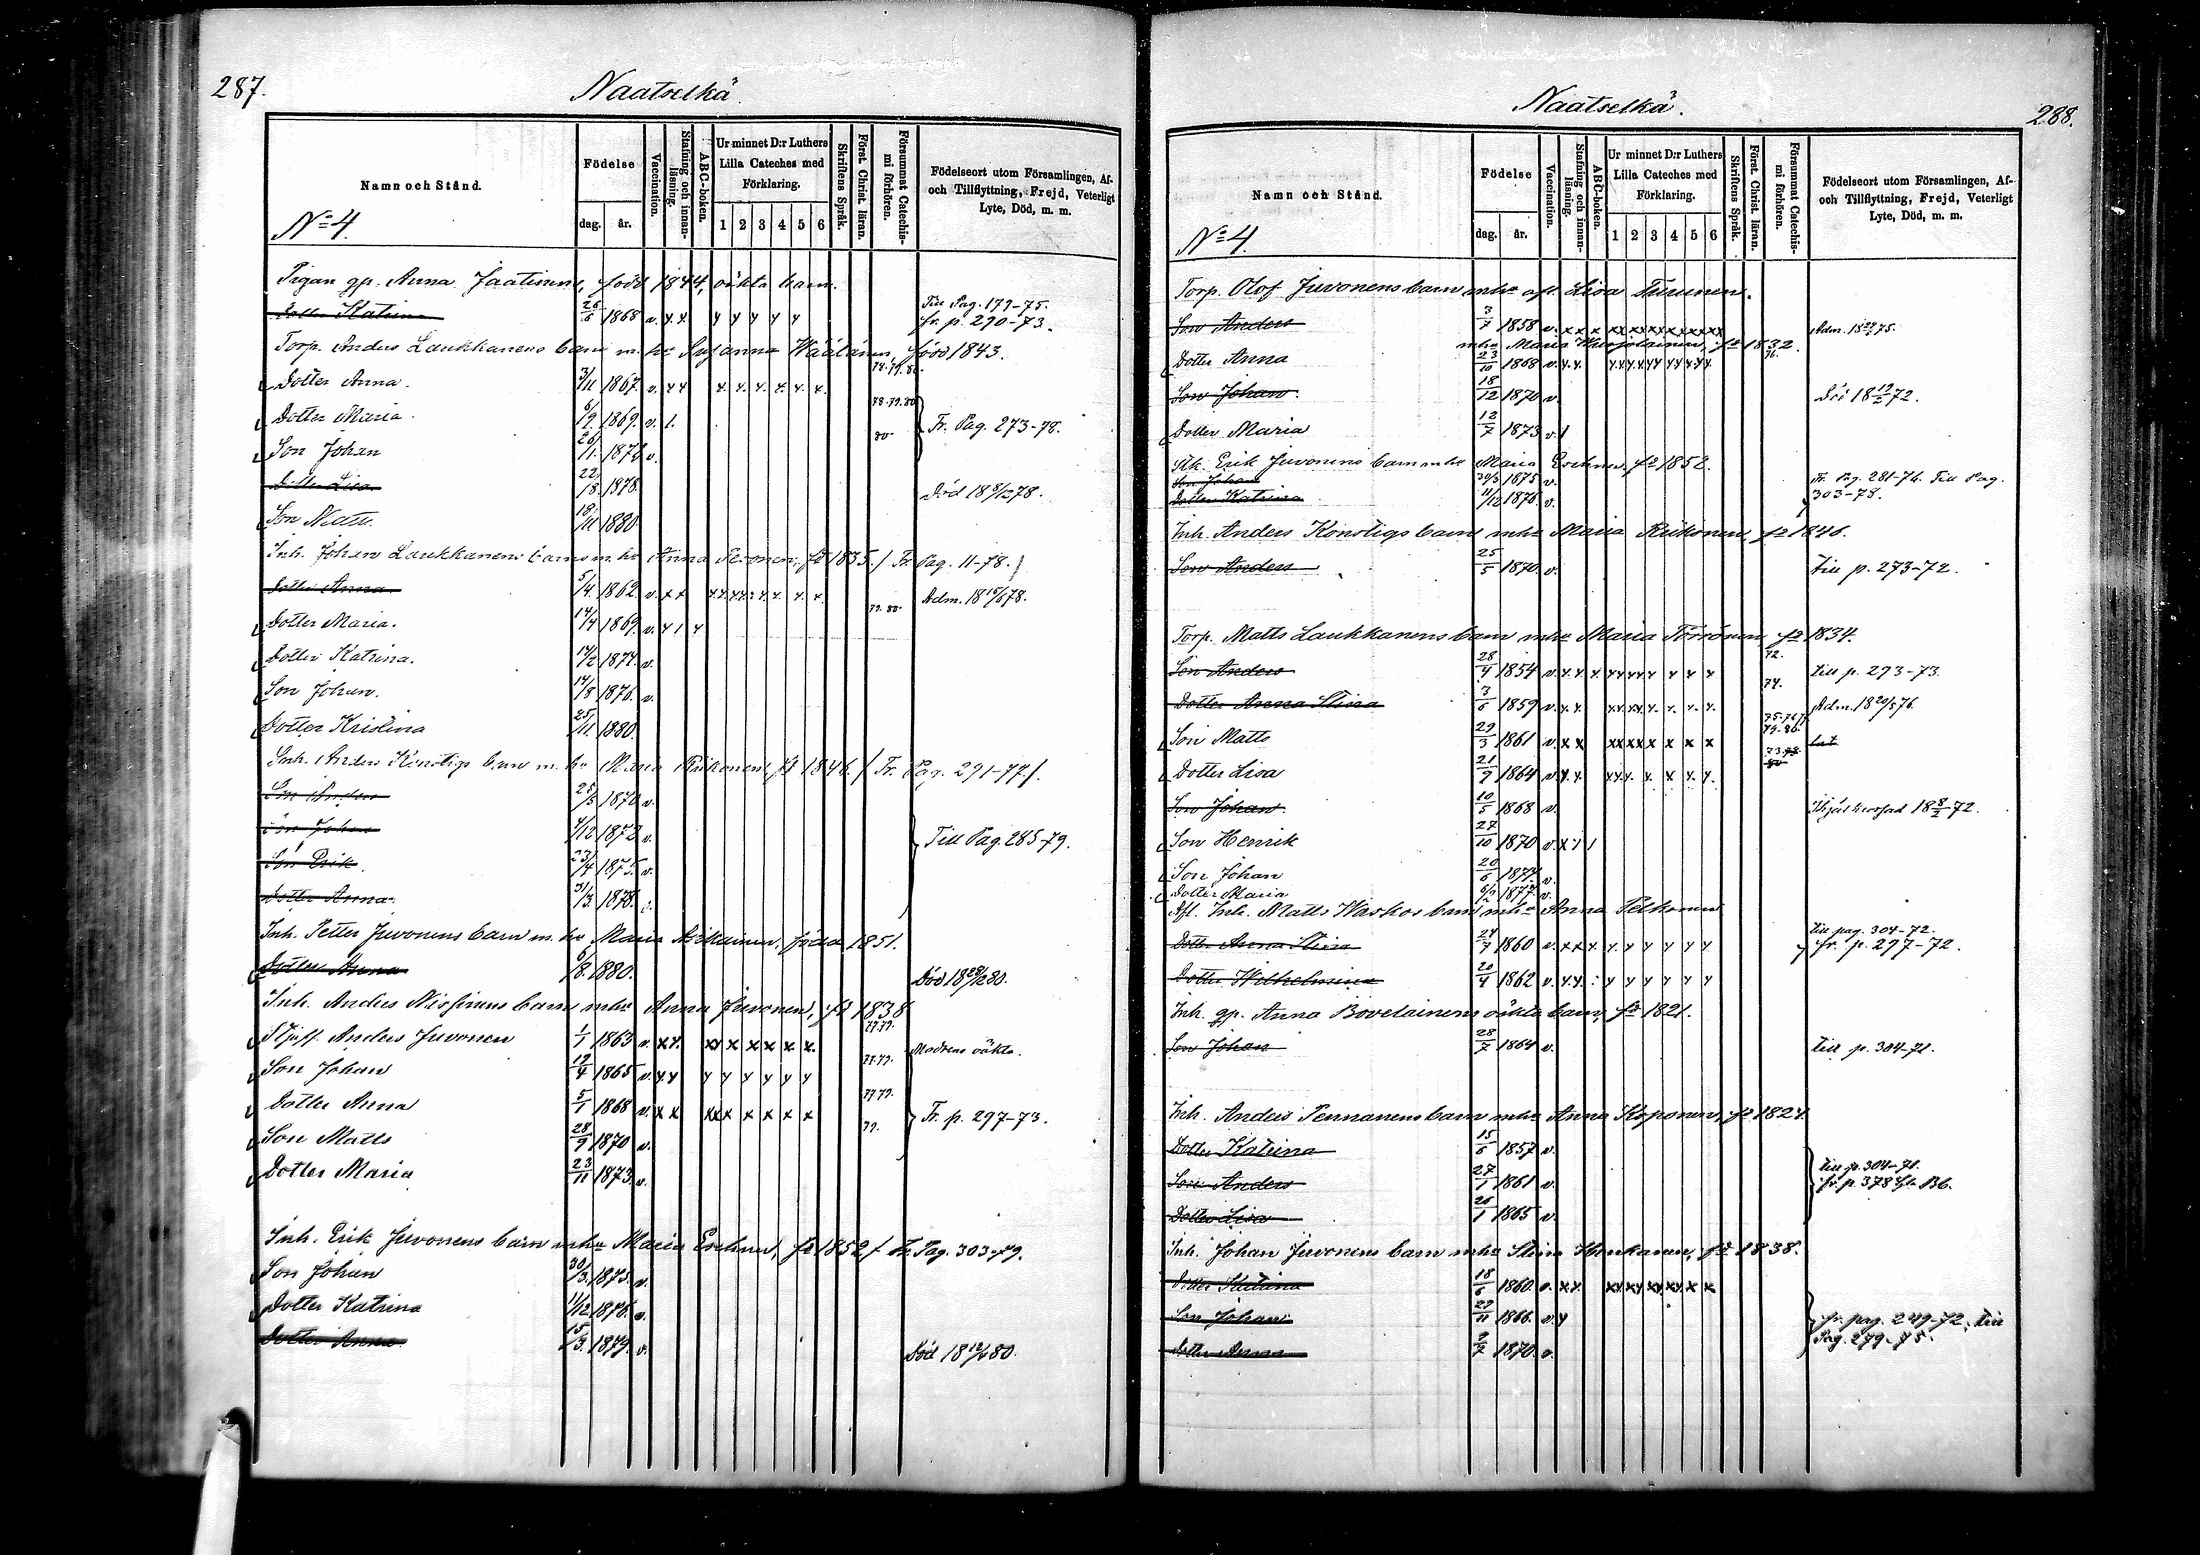 287.
Naatselkä.
Namn och Stånd.
Födelse
dag. år.
Vaccination.
Stafning och innan-läsning.
ABC-boken.
Ur minnet D:r Luthers
Lilla Cateches med
Förklaring.
1 2 3 4 5 6
Skriftens Språk.
Först. Christ. läran.
Försummat Catechis-mi förhören.
Födelseort utom Församlingen, Af-
och Tillflyttning, Frejd, Veterligt
Lyte, Död, m. m.
No 4.
Pigan gp. Anna Jaatinens, född 1844, oäkta barn.
Dotter Katrina 26/6 1868 v. Till Pag. 179-75. fr. p. 290-73.
Torp. Anders Laukkanens barn m. hu Susanna Wäätänen, född 1843.
Dotter Anna. 3/11 1867. v. 78.79.80.
Dotter Maria. 6/9. 1869. v. 1. 78.79.80 Fr. Pag. 273-78.
Son Johan 26/11. 1872 v. 80.
Dotter Lisa. 22/ 1878. Död 18 8/12 78.
Son Matts. 18/11 1880.
Inh. Johan Laukkanens barn m. hu Anna fd 1835. / Fr. Pag. 11-78. /
Dotter Anna. 5/4. 1862. v. Adm. 18 15/6 78.
Dotter Maria. 14/4 1869. v. 79. 80.
Dotter Katrina. 14/2 1874. v.
Son Johan. 14/8 1876. v.
Dotter Kristina 25/11. 1880.
Inh. Anders Konstigs barn m. hu Maria Riikonen, fd 1846. / Fr. Pag. 291-77 /.
Son Anders 25/5 1870 v.
Son Johan 4/12 1872 v. Till Pag. 285-79.
Son Erik. 23/4 1875. v.
Dotter Anna. 31/3. 1878.
Inh. Petter Juvonens barn m. hu Maria född 1851.
Dotter Anna 6/8. 1880. Död 18 28/12 80.
Inh. Anders Nissinens barn mhu Anna Juvonen, fd 1838
Stjuff. Anders Juvonen 1/1 1863 v. 77.79. Modrens oäkta.
Son Johan 12/4 1865 v. 77.79.
Dotter Anna 5/1 1868 v. 77 79. Fr. p. 297-73.
Son Matts 28/9 1870 v. 79.
Dotter Maria 23/11 1873 v.
Inh. Erik Juvonens barn mhu Maria fd 1852 / Fr. Pag. 303-79.
Son Johan 30/3. 1875. v.
Dotter Katrina 11/12 1876. v.
Dotter Anna 15/3. 1879. v. Död 18 12/6 80.
Naatselkä.
288.
Namn och Stånd.
Födelse
dag. år.
Vaccination.
Stafning och innan-läsning.
ABC-boken.
Ur minnet D:r Luthers
Lilla Cateches med
Förklaring.
1 2 3 4 5 6
Skriftens Språk.
Först. Christ. läran.
Försummat Catechis-mi förhören.
Födelseort utom Församlingen, Af-
och Tillflyttning, Frejd, Veterligt
Lyte, Död, m. m.
No 4.
Torp. Olof Juvonens barn mhu afl. Lisa Turunen.
Son Anders 3/7 1858 v. Adm. 75.
mhu Maria fd 1832.
Dotter Anna 23/10 1868 v. 76.
Son Johan. 18/12 1870 v. Dör 18 19/2 72.
Dotter Maria 12/7 1873 v. 1
Erik Juvonens barn mhu Maria fd 1852.
Son Johan 30/3 1875 v. Fr. Pag. 281-76. Till Pag.
Dotter Katrina 11/12 1876 v. 303-78.
Inh. Anders Konstigs barn mhu Maria Riikonen, fd 1846.
Son Anders 25/5 1870 v. till p. 273-72.
Torp. Matts Laukkanens barn mhu Maria Törrönen, fd 1834.
Son Anders 28/4 1854 v. 72. till p. 293-73.
Dotter Anna Stina 3/6 1859 v. 74. Adm. 18 20/5 76.
Son Matts 29/3 1861 v. 79.80.
Dotter Lisa 21/9 1864 v.
Son Johan 10/5 1868 v. 18 8/2 72.
Son Henrik 27/10 1870 v.
Son Johan 20/6 1874 v.
Dotter Maria 1877. v.
Afl. Inh. Matts Waskos barn mhu Anna Pelkonen
Dotter Anna Stina 24/7 1860 v. till pag. 304-72. fr. p. 297-72.
Dotter Wilhelmina 20/4 1862 v.
Inh. gp. Anna Bovelainens oäkta barn, fd 1821.
Son Johan 28/7 1864 v. till p. 304-71.
Inh. Anders Pennanens barn mhu Anna Koponen, fd 1824.
Dotter Katrina 15/5 1857 v.
Son Anders 27/1 1861 v. till p. 304-71. fr. p. 378
Dotter Lisa 26/1 1865 v.
Inh. Johan Juvonens barn mhu Stina fd 1838.
Dotter Katrina 18/6 1860. v.
Son Johan 29/11 1866. v. fr. pag. 249-72. till
Dotter Anna 9/7 1870. v. Pag. 279-75.